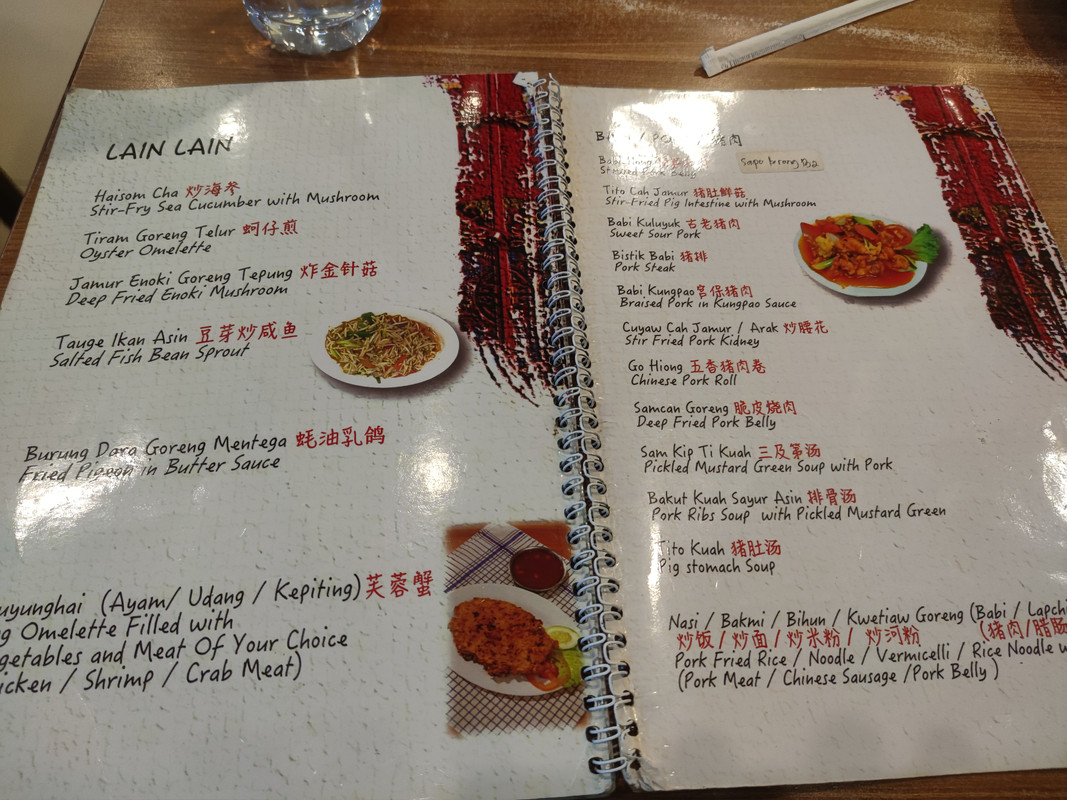 LAIN LAIN
Haisom Cha 炒海参
Stir-Fry Sea Cucumber with Mushroom
Tiram Goreng Telur 蚵仔煎
Oyster Omelette
Jamur Enoki Goreng Tepung 炸金针菇
Deep Fried Enoki Mushroom
Tauge Ikan Asin 豆芽炒咸鱼
Salted Fish Bean Sprout
Burung Dara Goreng Mentega 蚝油乳鸽
Fried Pigeon in Butter Sauce
uyunghai (Ayam/ Udang / Kepiting) 芙蓉蟹
g Omelette Filled with
getables and Meat Of Your Choice
icken / Shrimp / Crab Meat)
猪肉
Belly
Tito Cah Jamur 猪肚鲜菇
Stir-Fried Pig Intestine with Mushroom
Babi Kuluyuk 古老猪肉
Sweet Sour Pork
Bistik Babi 猪排
Pork Steak
Babi Kungpao 宫保猪肉
Braised Pork in Kungpao Sauce
Cuyaw Cah Jamur / Arak 炒腰花
Stir Fried Pork Kidney
Go Hiong 五香猪肉卷
Chinese Pork Roll
Samcan Goreng 脆皮烧肉
Deep Fried Pork Belly
Sam Kip Ti Kuah 三及第汤
Pickled Mustard Green Soup with Pork
Bakut Kuah Sayur Asin 排骨汤
Pork Ribs Soup with Pickled Mustard Green
Tito Kuah 猪肚汤
Pig stomach Soup
Nasi / Bakmi / Bihun / Kwetiaw Goreng (Babi / Lapchi
炒饭 / 炒面 / 炒米粉 / 炒河粉 (猪肉/腊肠
Pork Fried Rice / Noodle / Vermicelli / Rice Noodle w
(Pork Meat / Chinese Sausage /Pork Belly )